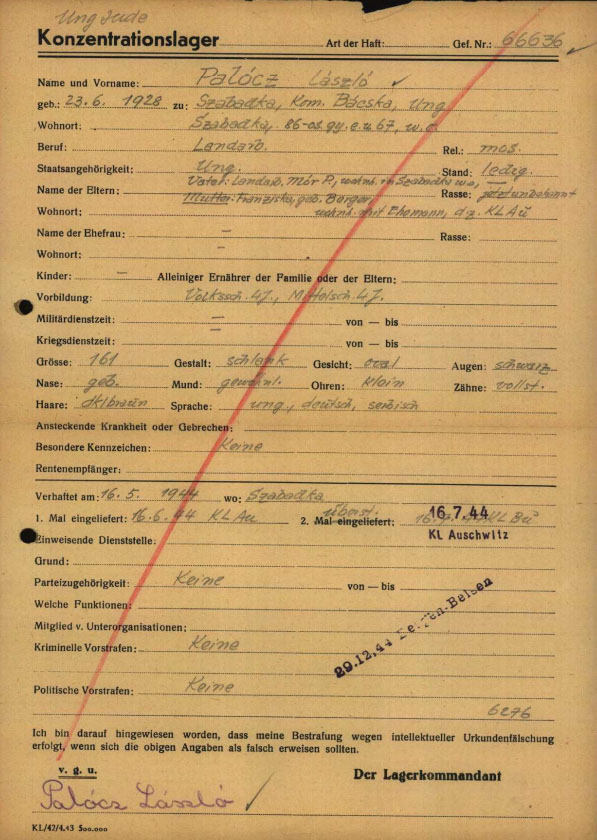 Ung Jude
Konzentrationslager Art der Haft: Gef. Nr.: 66636
Name und Vorname: Palócz László
geb.: 23.6. 1928 zu: Szabadka, Kom. Bácska, Ung
Wohnort: Szabadka, 86-os gy. e. u 67, w.o.
Beruf: Landarb. Rel.: mos.
Staatsangehörigkeit: Ung. Stand: ledig.
Name der Eltern: Vater: Landarb. Mór P., wohnh. in Szabadka wo, Rasse: jetzt unbekannt
Mutter: Franziska, geb. Berger
Wohnort: wohnh. mit Ehemann, d.z. KL Au
Name der Ehefrau: — Rasse:
Wohnort: —
Kinder: — Alleiniger Ernährer der Familie oder der Eltern:
Vorbildung: Volkssch. 4J., Mittelsch. 4J.
Militärdienstzeit: — von — bis
Kriegsdienstzeit: — von — bis
Grösse: 161 Gestalt: schlank Gesicht: oval Augen: schwarz
Nase: geb. Mund: gewöhnl. Ohren: klein Zähne: vollst.
Haare: dklbraun Sprache: ung., deutsch, serbisch
Ansteckende Krankheit oder Gebrechen:
Besondere Kennzeichen: Keine
Rentenempfänger:
Verhaftet am: 16.5. 1944 wo: Szabadka
1. Mal eingeliefert: 16.6.44 KL Au überst. 2. Mal eingeliefert: 16.7.44 KL Bu
16.7.44
KL Auschwitz
Einweisende Dienststelle:
Grund:
Parteizugehörigkeit: Keine von — bis
Welche Funktionen:
Mitglied v. Unterorganisationen:
29.12.44 Bergen-Belsen
Kriminelle Vorstrafen: Keine
Politische Vorstrafen: Keine
6276
Ich bin darauf hingewiesen worden, dass meine Bestrafung wegen intellektueller Urkundenfälschung
erfolgt, wenn sich die obigen Angaben als falsch erweisen sollten.
v. g. u. Der Lagerkommandant
Palócz László
KL/42/4.43 500.000